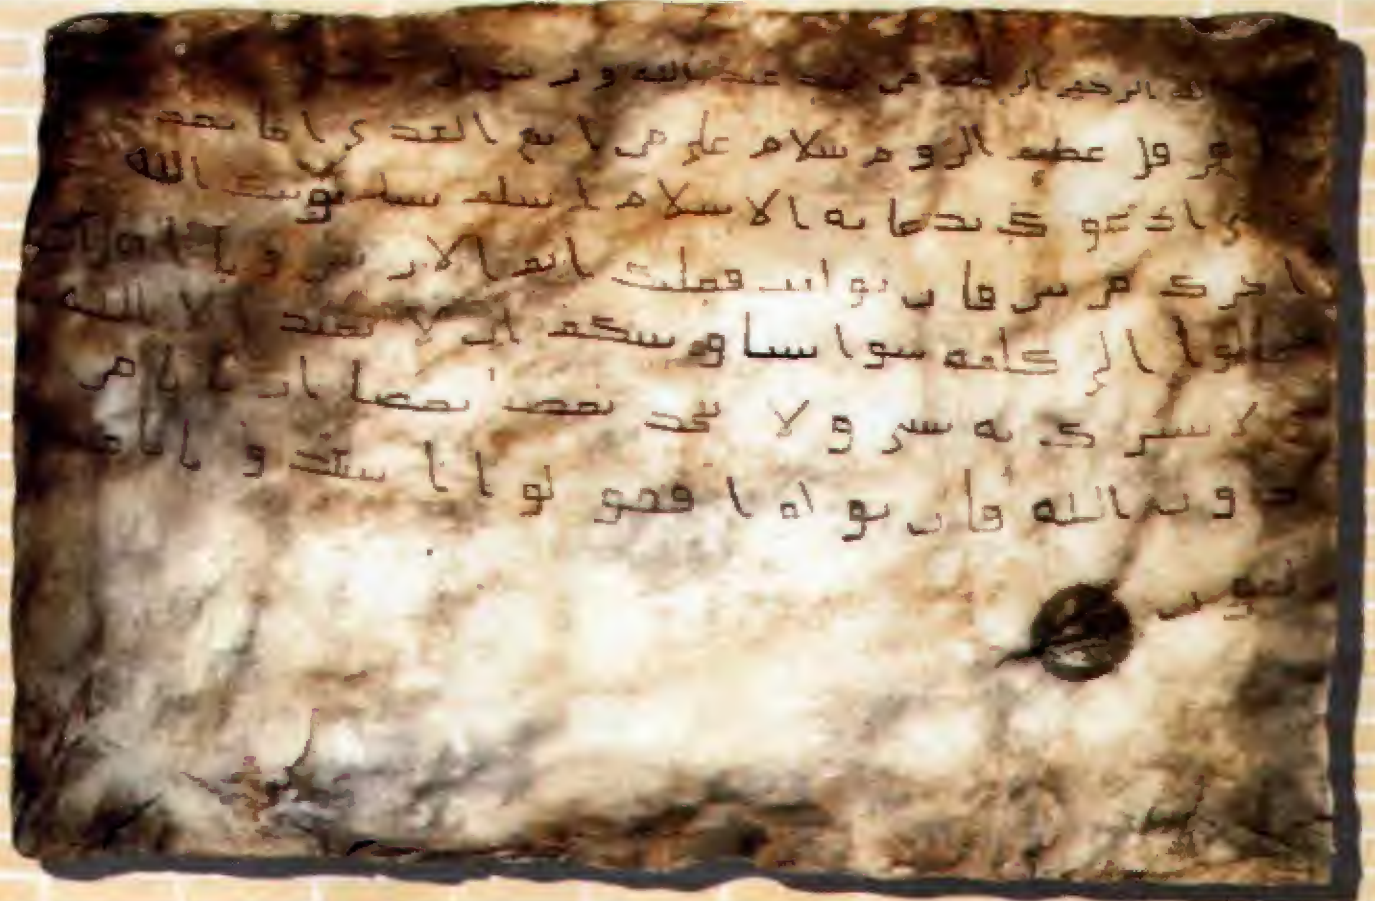 لله الرحمن الرحيم من محمد عبد الله و رسوله
هر قل عظيم الروم سلام على من ا تبع الهدى اما بعد
ى ادعوك بدعا ية الا سلام ا سلم تسلم يؤتك الله
ا جرك مر تين فان تو ليت فعليك اثم الار يسين و يا ا هل
تعالوا الى كلمة سوا بيننا و بينكم ان لا نعبد ا لا الله
و لا نشرك به شى و لا يتخذ بعضنا بعضا اربا با من
دون الله فان تو لوا فقو لوا ا شهد و ا با نا
لمون